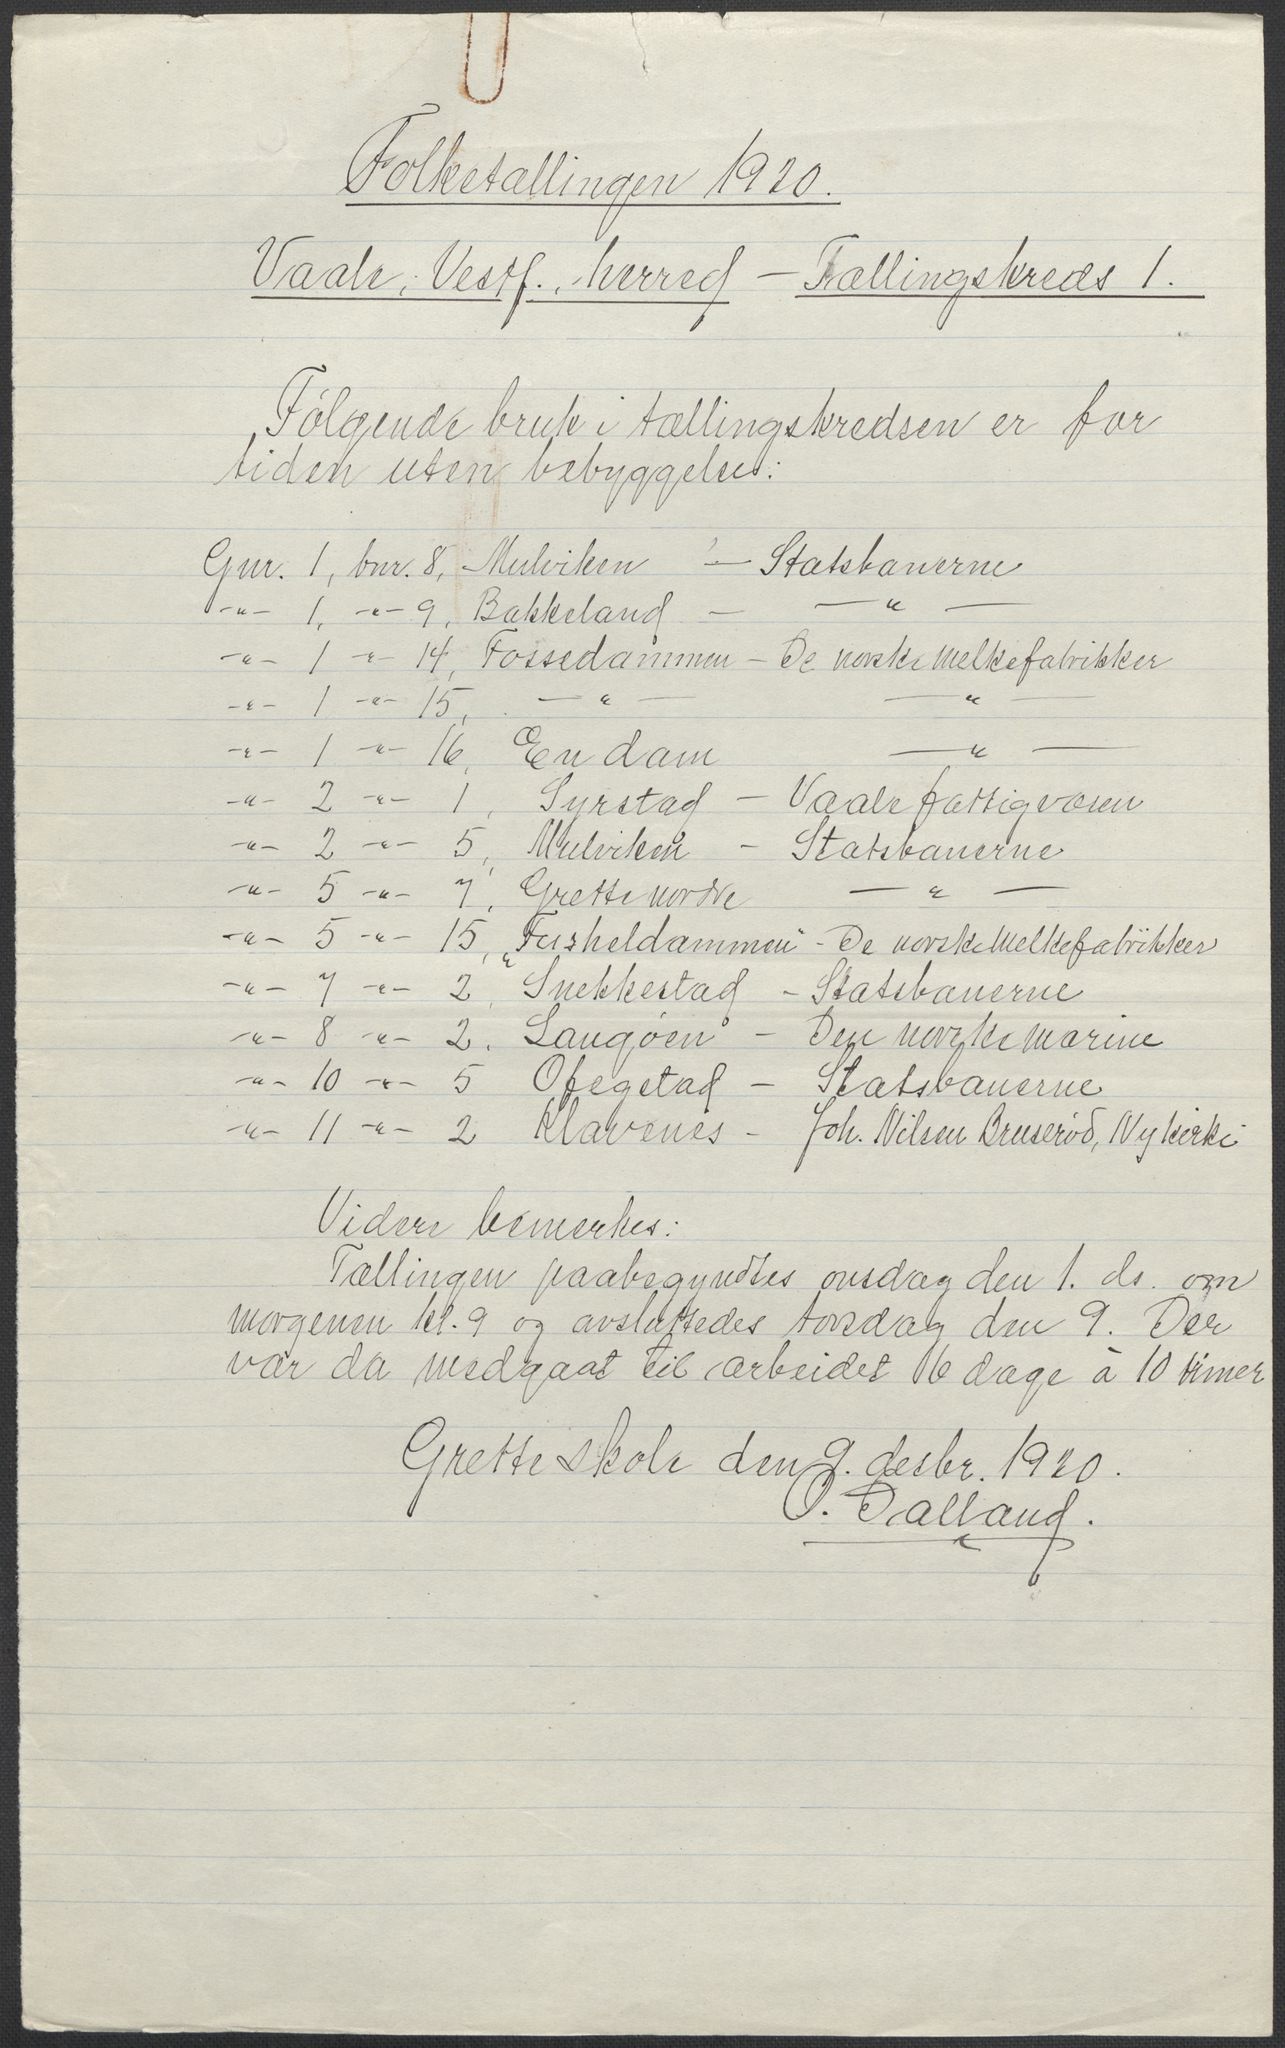 Folketællingen 1920.
Vaale, Vestf., herred – Tællingskreds 1.
Følgende bruk i tællingskredsen er for
tiden uten bebyggelse:
Gnr. 1, bnr. 8, Mulviken – Statsbanerne
-"- 1, -"- 9, Bakkeland – – " –
-"- 1 -"- 14, Fossedammen – De norske melkefabrikker
-"- 1 -"- 15, – " – – " –
-"- 1 -"- 16, En dam – " –
-"- 2 -"- 1, Syrstad – Vaale fattigvæsen
-"- 2 -"- 5, Mulviken – Statsbanerne
-"- 5 -"- 7, Grette nordre – " –
-"- 5 -"- 15, "Fusheldammen" – De norske melkefabrikker
-"- 7 -"- 2, Snekkestad – Statsbanerne
-"- 8 -"- 2, Langøen – Den norske marine
-"- 10 -"- 5 Ofegstad – Statsbanerne
-"- 11 -"- 2 Klavenes – Joh. Nilsen Bruserød, Nykirke
Videre bemerkes:
Tællingen paabegyndtes onsdag den 1. ds. om
morgenen kl. 9 og avsluttedes torsdag den 9. Der
var da medgaat til arbeidet 16 dage à 10 timer
Grette skole den 9. desbr. 1920.
O. Dalland.